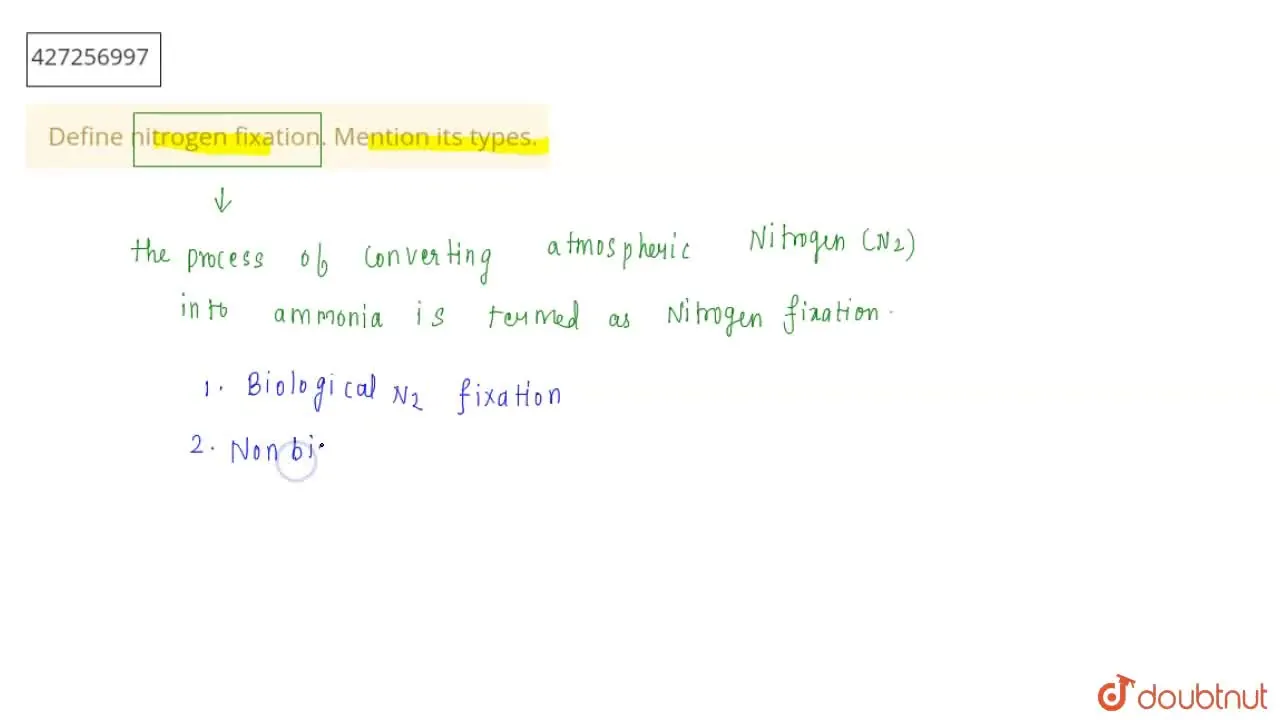 427256997
Define nitrogen fixation. Mention its types.
the process of converting atmospheric Nitrogen (N2)
into ammonia is termed as Nitrogen fixation.
1. Biological N2 fixation
2. Non bi
doubtnut